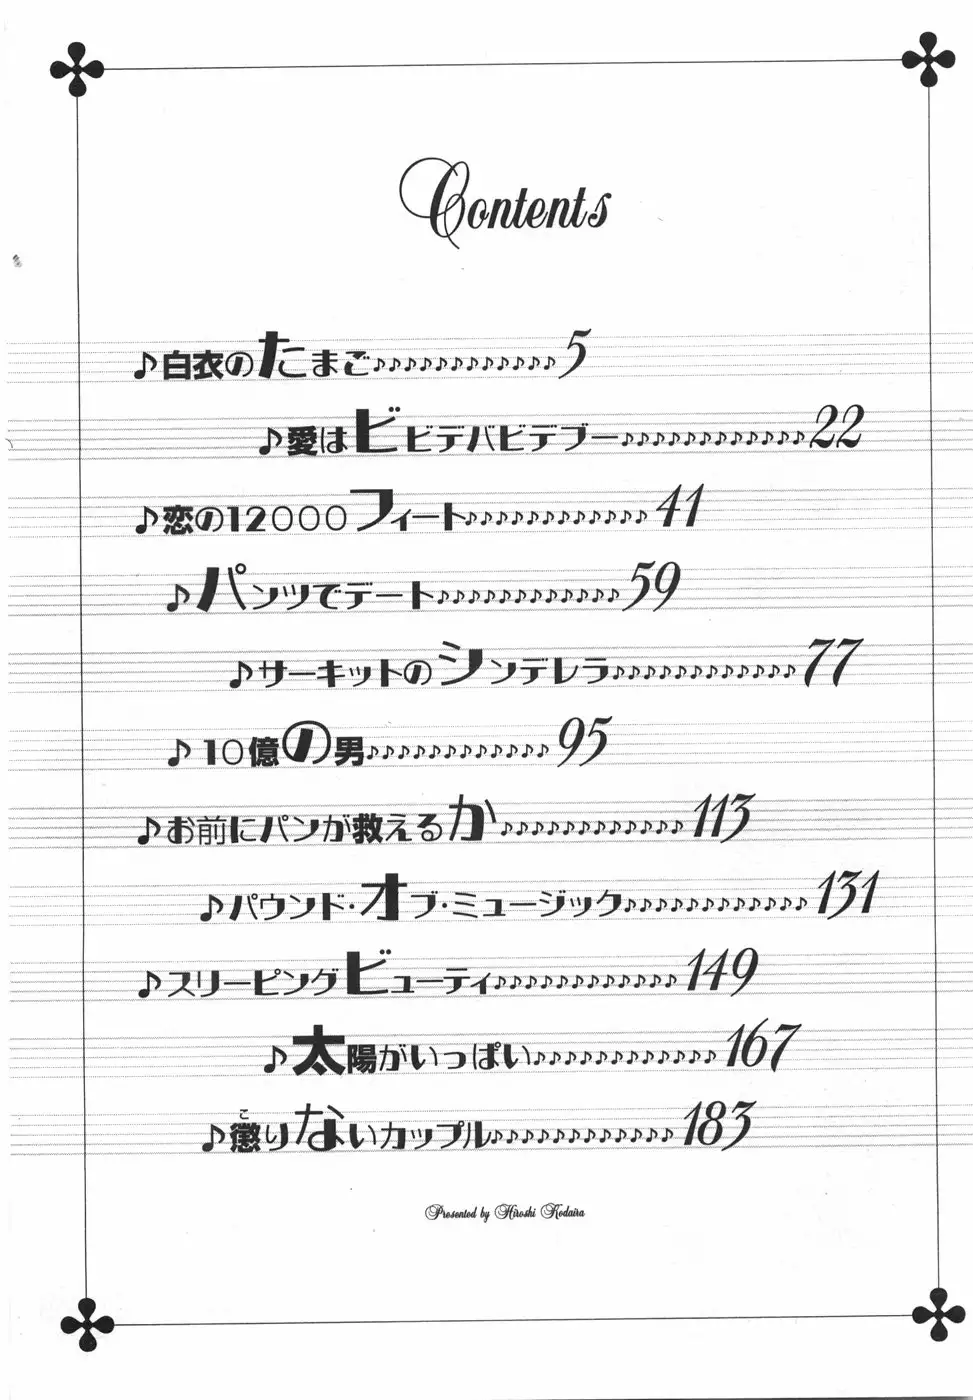 Contents
♪白衣のたまご♪♪♪♪♪♪♪♪♪♪♪♪5
♪愛はビビデバビデブー♪♪♪♪♪♪♪♪♪♪♪♪22
♪恋の12000フィート♪♪♪♪♪♪♪♪♪♪♪♪41
♪パンツでデート♪♪♪♪♪♪♪♪♪♪♪♪59
♪サーキットのシンデレラ♪♪♪♪♪♪♪♪♪♪♪♪77
♪10億の男♪♪♪♪♪♪♪♪♪♪♪♪95
♪お前にパンが救えるか♪♪♪♪♪♪♪♪♪♪♪♪113
♪パウンド・オブ・ミュージック♪♪♪♪♪♪♪♪♪♪♪♪131
♪スリーピングビューティ♪♪♪♪♪♪♪♪♪♪♪♪149
♪太陽がいっぱい♪♪♪♪♪♪♪♪♪♪♪♪167
♪懲りないカップル♪♪♪♪♪♪♪♪♪♪♪♪183
Presented by Hiroshi Kodaira